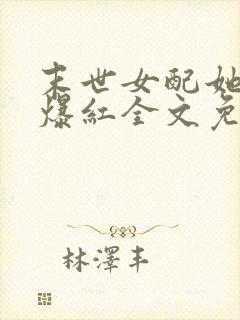 末世女配她
爆红全文免
林澤丰